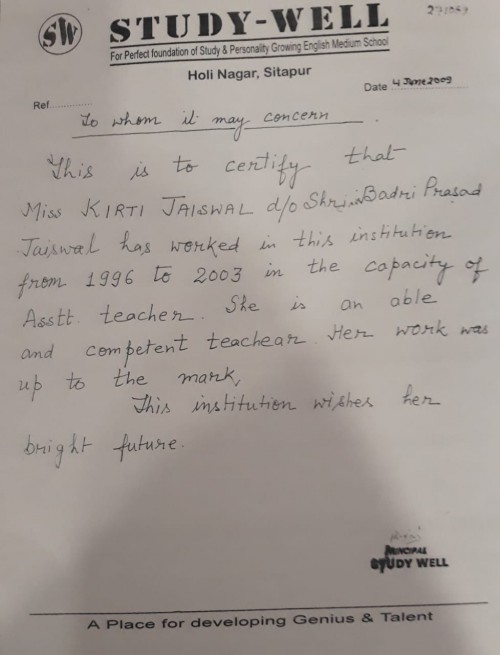 SW
STUDY-WELL
For Perfect foundation of Study & Personality Growing English Medium School
Holi Nagar, Sitapur
Date 4 June 2009
Ref..............
To whom it may concern.
This is to certify that
Miss KIRTI JAISWAL d/o Shri Badri Prasad
Jaiswal has worked in this institution
from 1996 to 2003 in the capacity of
Asstt. teacher. She is an able
and competent teachear. Her work was
up to the mark,
This institution wishes her
bright future.
PRINCIPAL
STUDY WELL
A Place for developing Genius & Talent